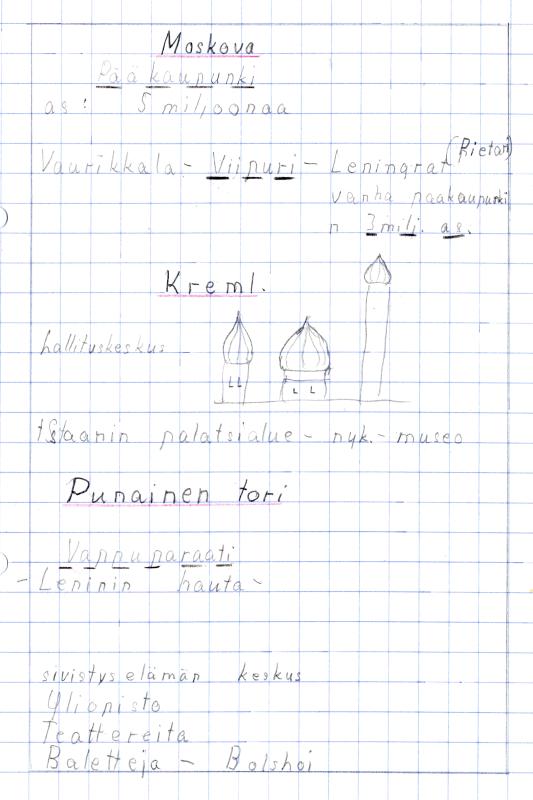 Moskova
Pääkaupunki
as: 5 miljoonaa
Vaurikkala - Viipuri - Leningrat (Pietari)
vanha pääkaupunki
n 3 milj. as.
Kreml.
hallituskeskus
LL
L L
tsaarin palatsialue - nyk. - museo
Punainen tori
Vappuparaati
- Leninin hauta -
sivistyselämän keskus
Yliopisto
Teattereita
Baletteja - Bolshoi